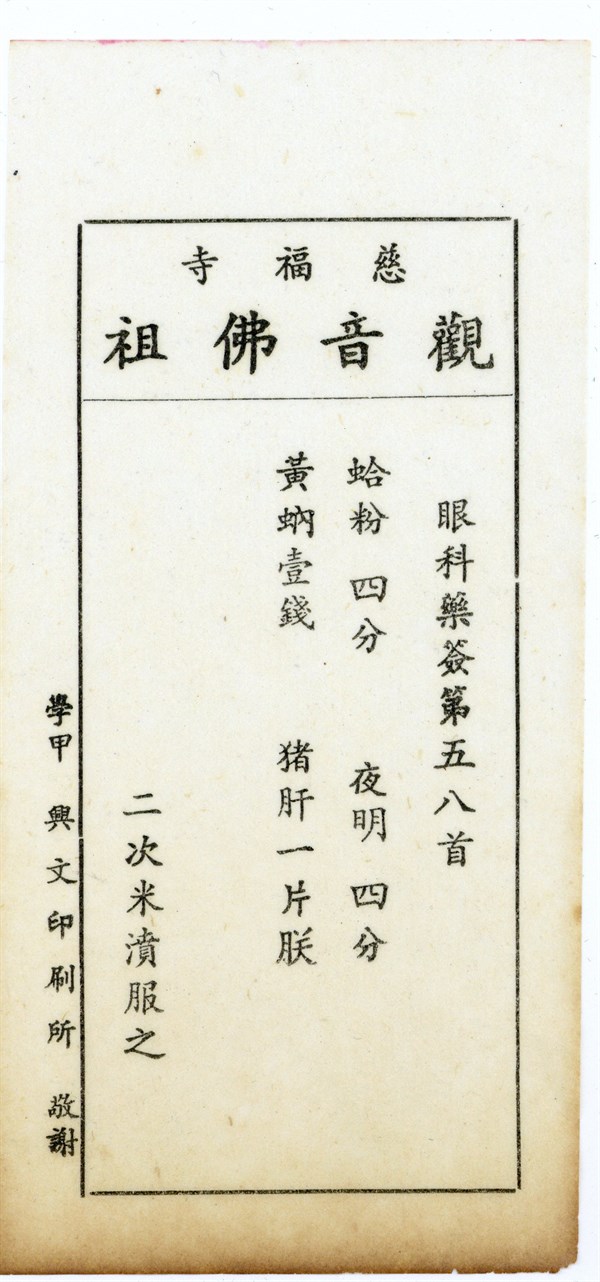 慈福寺
觀音佛祖
眼科藥簽第五八首
蛤粉 四分 夜明 四分
黃蚋壹錢 猪肝一片朕
二次米濆服之
學甲 興文印刷所 敬謝